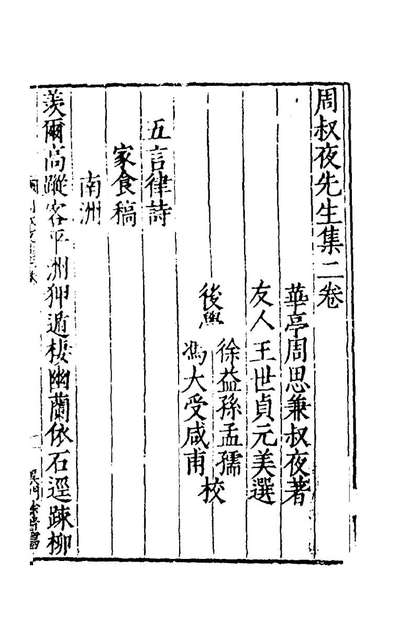 周叔夜先生集二卷
華亭周思兼叔夜著
友人王世貞元美選
後學徐益孫孟孺
馮大受咸甫校
五言律詩
家食稿
南洲
羨爾高蹤客平洲狎遁棲幽蘭依石逕疎柳